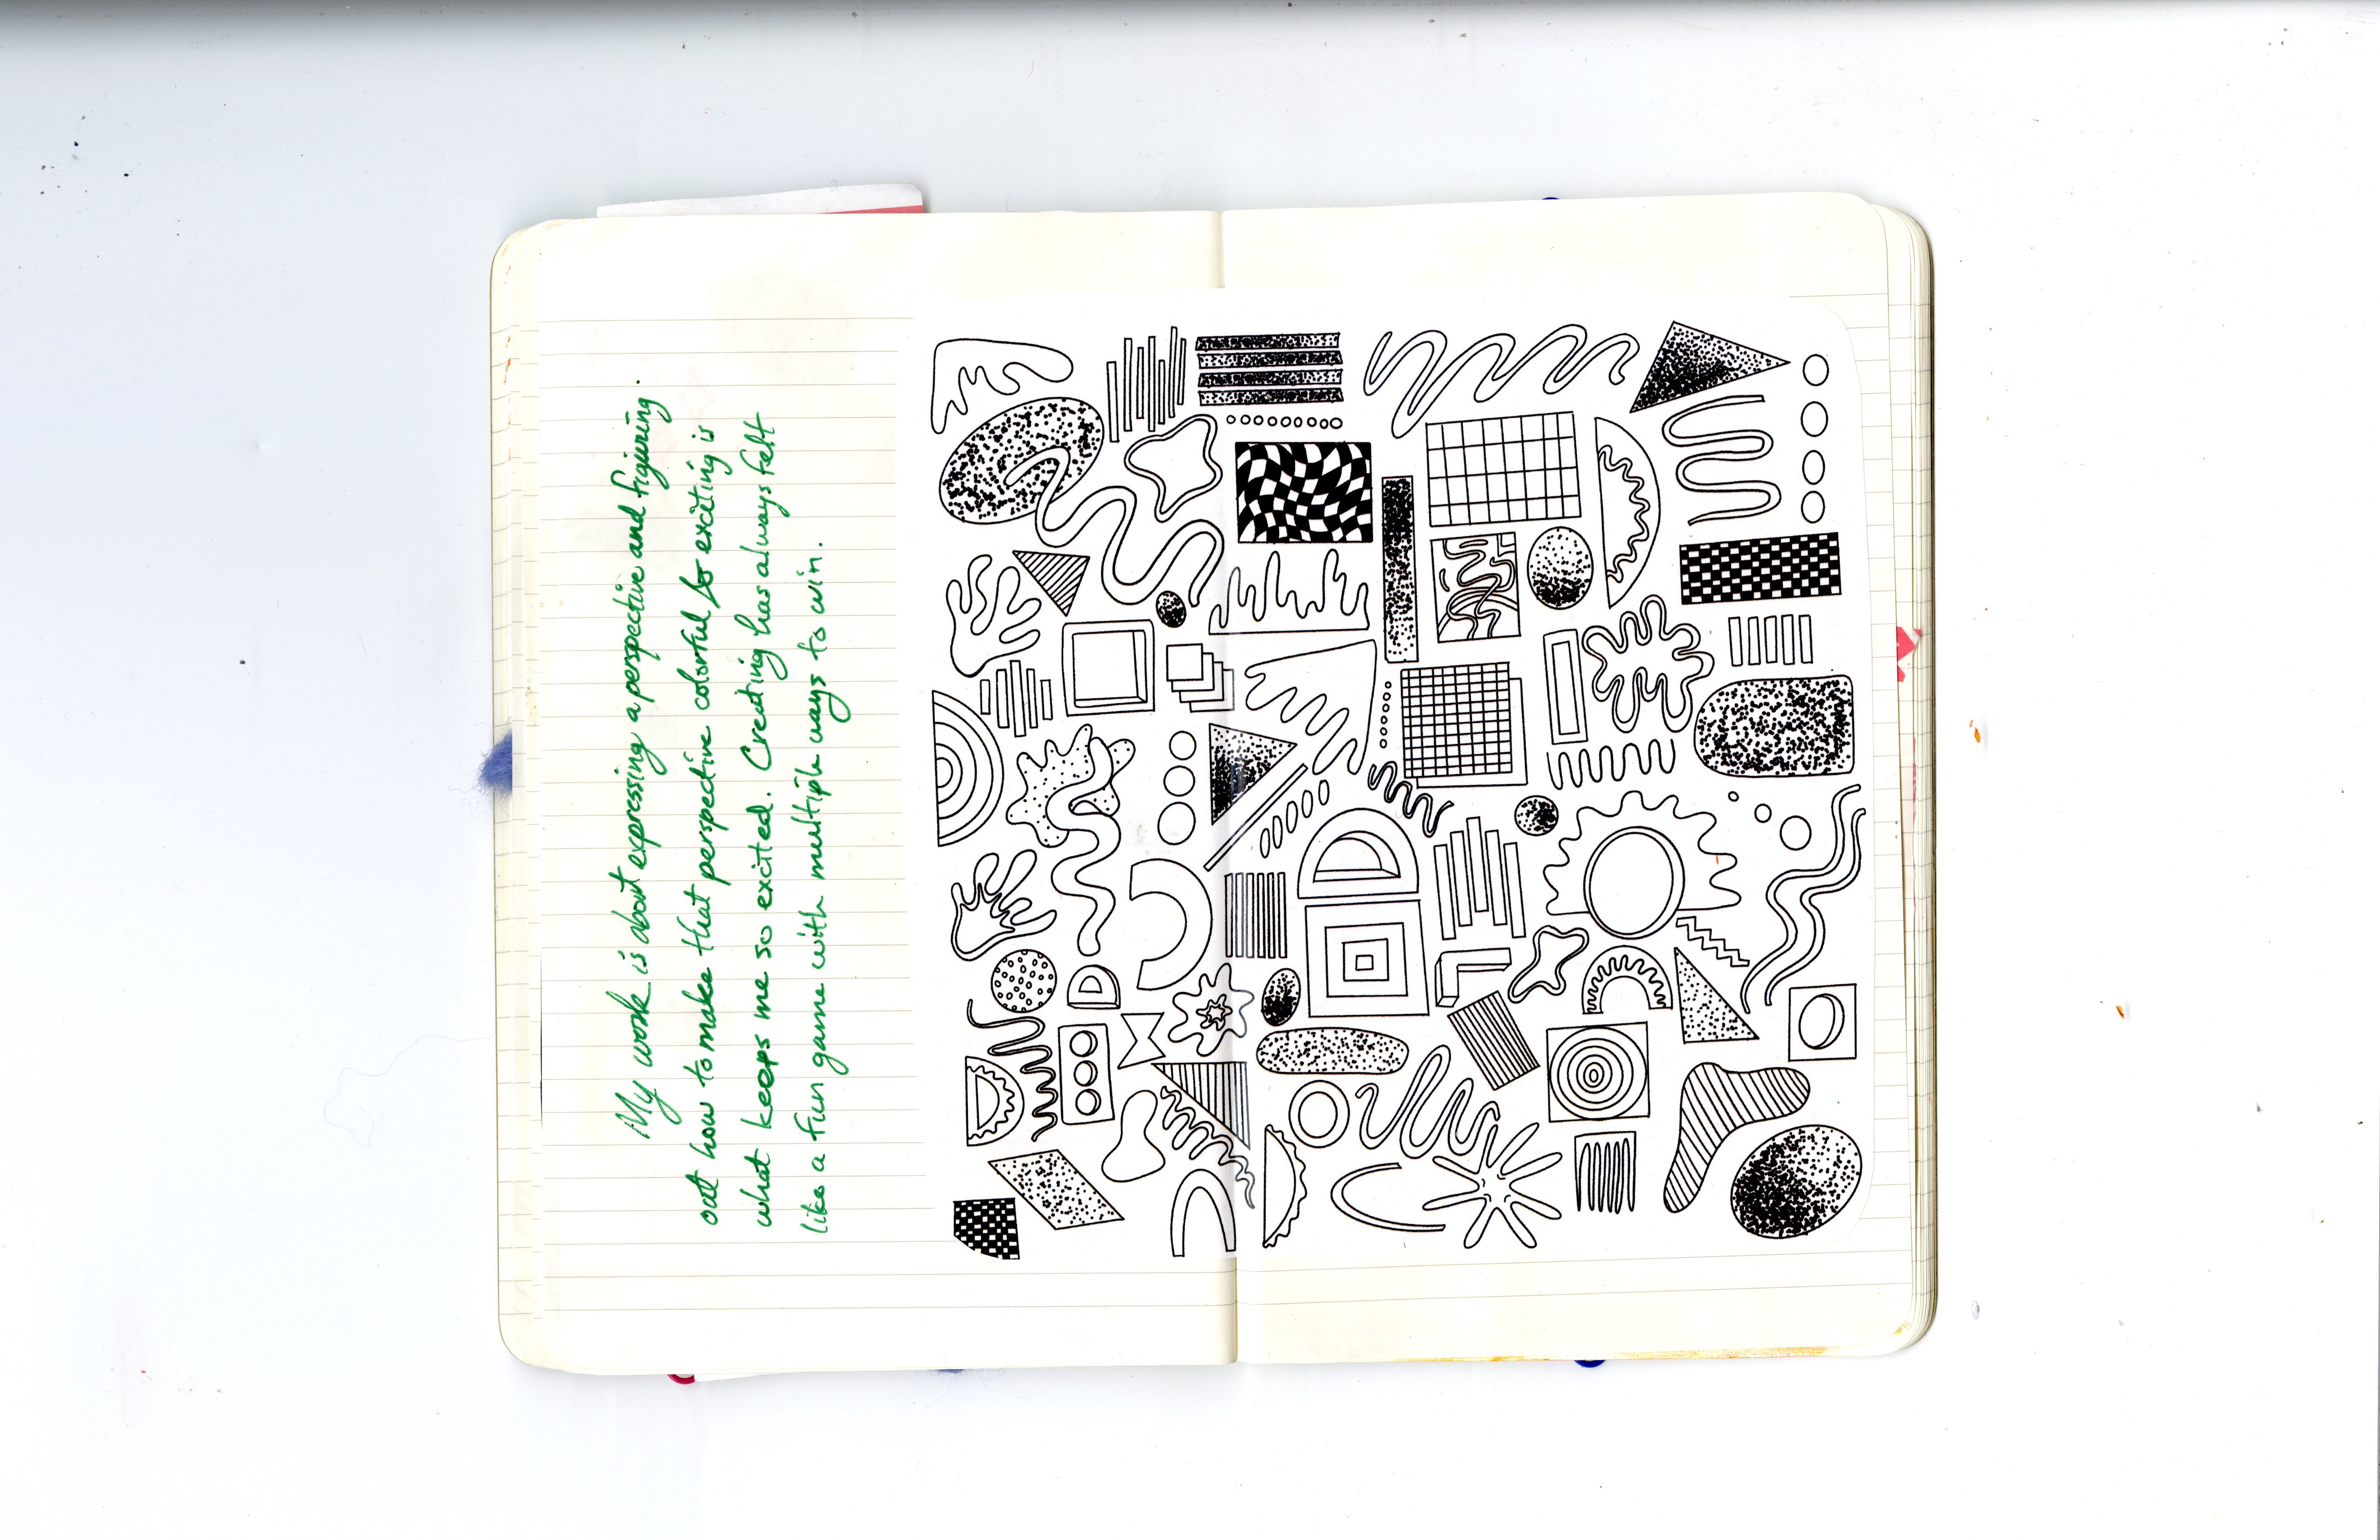 My work is about expressing a perspective and figuring
out how to make that perspective colorful & exciting is
what keeps me so excited. Creating has always felt
like a fun game with multiple ways to win.